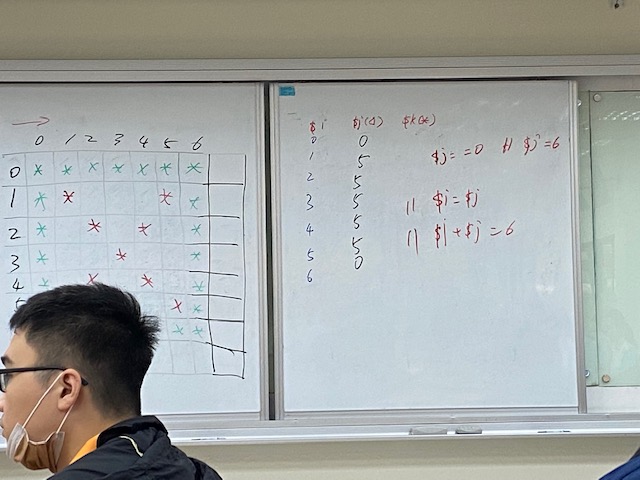 0 1 2 3 4 5 6
0 * * * * * * *
1 * * * *
2 * * * *
3 * * *
4 * * * *
* *
* *
$i $j(△) $k(*)
0 0
1 5
2 5
3 5
4 5
5 5
6 0
$j==0 || $j=6
|| $i=$j
|| $i+$j=6